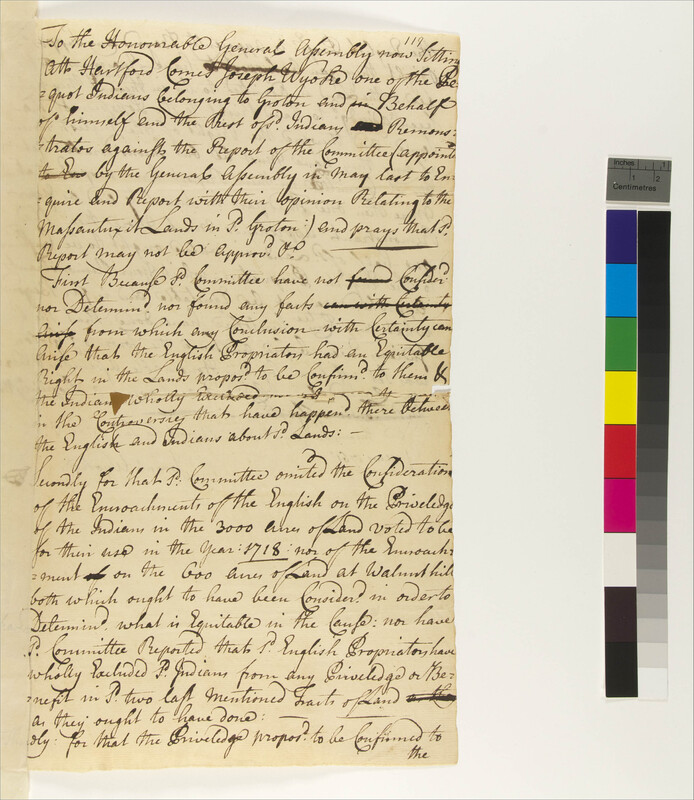 119
To the Honourable General Assembly now Sitting
Att Hartford Comes Joseph Wyoke one of the Pe-
quot Indians belonging to Groton and in Behalf
of himself and the Rest of sd. Indians and Remons=
=strates against the Report of the Committee (appointd
by the General Assembly in May last to En
=quire and Report with their opinion Relating to the
Massantuxit Lands in sd. Groton:) and prays that sd.
Report may not be approvd. &c
First Because sd. Committee have not found Considerd
nor Determind. nor found any facts can with Certainty
Arise from which any Conclusion with Certainty can
Arise that the English Propriators had an Equitable
Right in the Lands proposd. to be Confirmd. to them &
the Indians wholly
in the Controversies that have happend. there Between
the English and Indians about sd. Lands: -
Secondly for that sd. Committee omitted the Consideration
of the Encroachments of the English on the Priveledge
of the Indians in the 3000 acres of Land voted to be
for their use in the Year: 1718: nor of the Encroach-
=ment of on the 600 acres of Land at Walnut hill
both which ought to have been Considerd. in order to
Determind. what is Equitable in the Cause: nor have
sd. Committee Reported that sd. English Propriators have
wholly Excluded sd. Indians from any Priveledge or Be=
=nefit in sd. two last Mentioned Tracts of Land
as they ought to have done:
dly: for that the Priveledge proposd. to be Confirmed to
the
inches
1
2
Centimetres